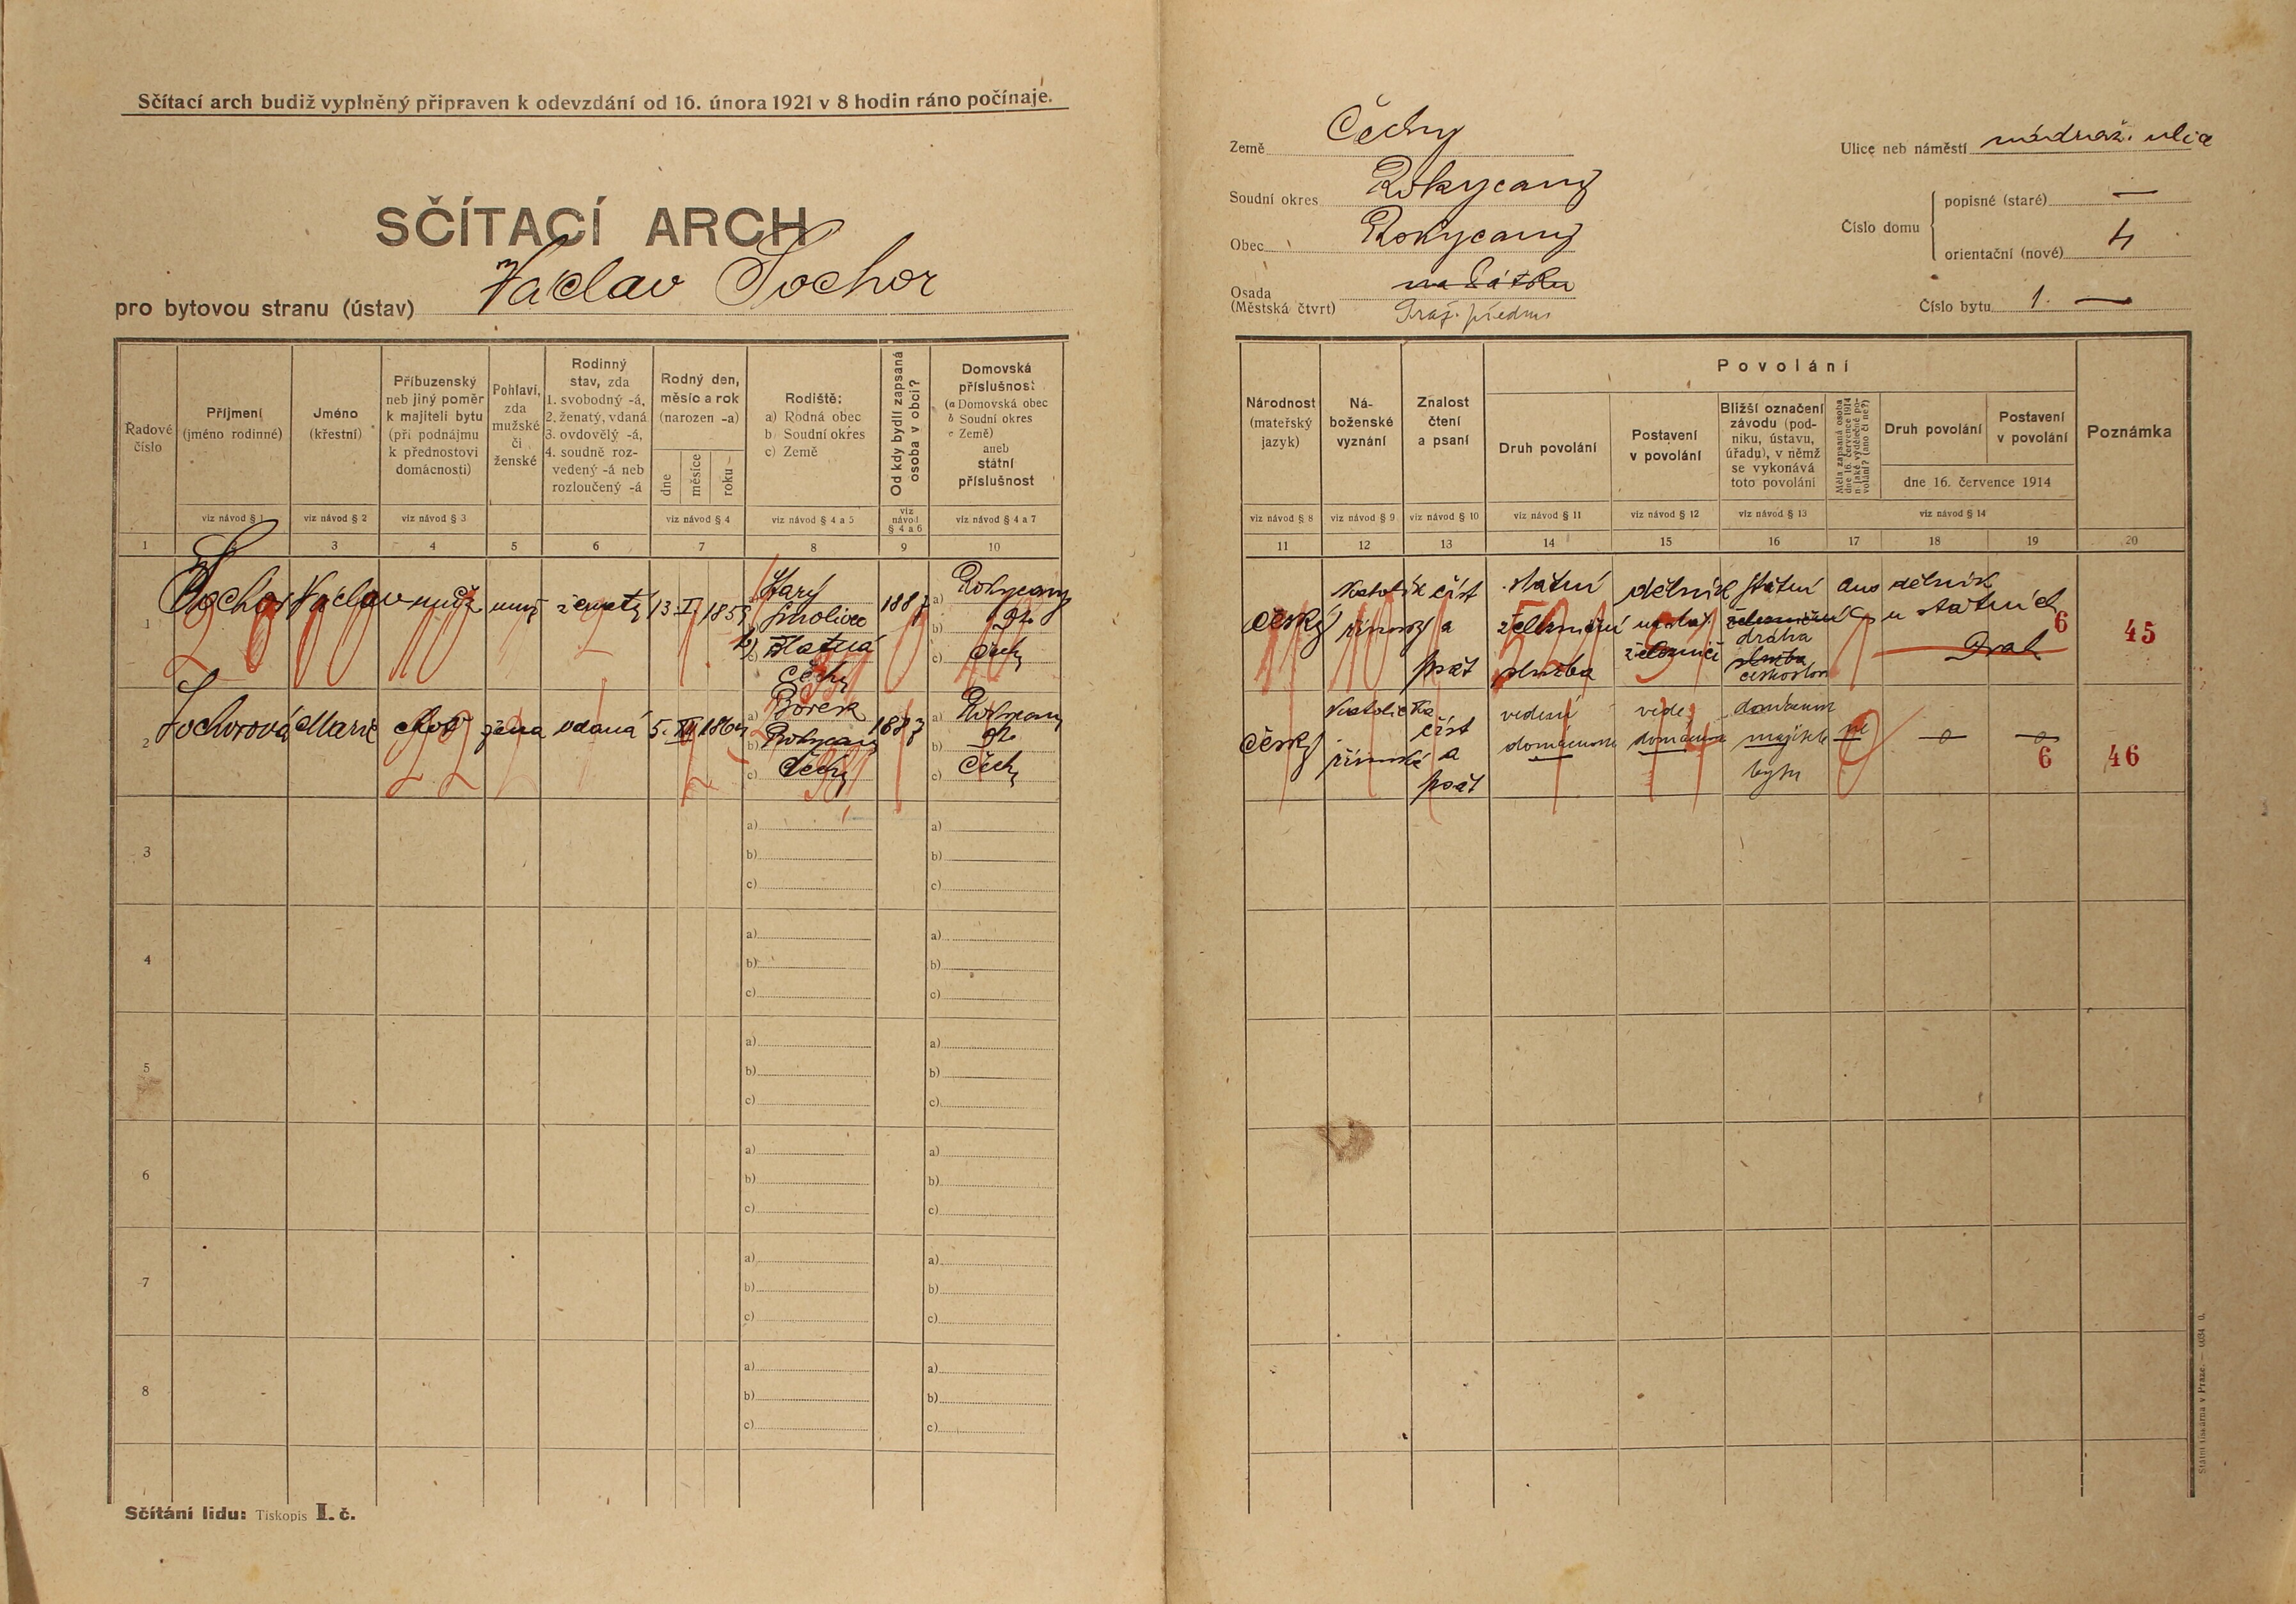 Sčítací arch budiž vyplněný připraven k odevzdání od 16. února 1921 v 8 hodin ráno počínaje.
SČÍTACÍ ARCH
pro bytovou stranu (ústav) Václav Sochor
Země Čechy
Soudní okres Rokycany
Obec Rokycany
Osada
(Městská čtvrt)
Praž. předm.
Ulice neb náměstí nádraž. ulice
Číslo domu
popisné (staré) —
orientační (nové) 4
Číslo bytu 1. —
Řadové číslo
Příjmení
(jméno rodinné)
Jméno
(křestní)
Příbuzenský
neb jiný poměr
k majiteli bytu
(při podnájmu
k přednostovi
domácnosti)
Pohlaví,
zda
mužské
či
ženské
Rodinný
stav, zda
1. svobodný -á,
2. ženatý, vdaná
3. ovdovělý -á,
4. soudně roz-
vedený -á neb
rozloučený -á
Rodný den,
měsíc a rok
(narozen -a)
dne
měsíce
roku
Rodiště:
a) Rodná obec
b) Soudní okres
c) Země
Od kdy bydlí zapsaná
osoba v obci?
Domovská
příslušnost
(a Domovská obec
b Soudní okres
c Země)
aneb
státní
příslušnost
viz návod § 1
viz návod § 2
viz návod § 3
viz návod § 4
viz návod § 4 a 5
viz
návod
§ 4 a 6
viz návod § 4 a 7
1 2 3 4 5 6 7 8 9 10
Národnost
(mateřský
jazyk)
Ná-
boženské
vyznání
Znalost
čtení
a psaní
Povolání
Druh povolání
Postavení
v povolání
Bližší označení
závodu (pod-
niku, ústavu,
úřadu), v němž
se vykonává
toto povolání
Měla zapsaná osoba
dne 16. července 1914
n jaké výdělečné po-
volání? (ano či ne?)
Druh povolání
Postavení
v povolání
dne 16. července 1914
Poznámka
viz návod § 8
viz návod § 9
viz návod § 10
viz návod § 11
viz návod § 12
viz návod § 13
viz návod § 14
11 12 13 14 15 16 17 18 19 20
1
Sochor Václav muž muž ženatý 13. I. 1859
Starý
Smolivec
b) Blatná
Čechy
1887
a) Rokycany
b)
c) Čechy
český
Katolík
římský
číst
a
psát
státní
železniční
služba
dělník
státní
dráha
ano
dělník
u státních
Drah
6
45
2
Sochorová Marie choť žena vdaná 5. XII 1864
a) Borek
b) Rokycany
c) Čechy
1887
a) Rokycany
b)
c) Čechy
český
Katolička
římská
číst
a
psát
vedení
domácnosti
vede
majitele
bytu
ne
6
46
3
a)
b)
c)
a)
b)
c)
4
a)
b)
c)
a)
b)
c)
5
a)
b)
c)
a)
b)
c)
6
a)
b)
c)
a)
b)
c)
7
a)
b)
c)
a)
b)
c)
8
a)
b)
c)
a)
b)
c)
Sčítání lidu: Tiskopis I. č.
Státní tiskárna v Praze. —